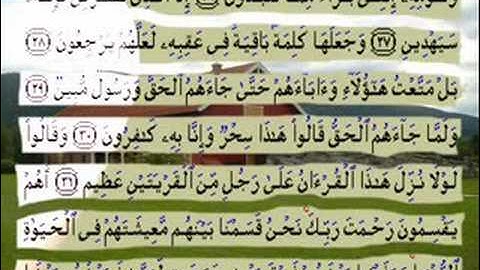 سَيَهْدِينِ ٢٧ وَجَعَلَهَا كَلِمَةًۢ بَاقِيَةً فِى عَقِبِهِۦ لَعَلَّهُمْ يَرْجِعُونَ ٢٨
بَلْ مَتَّعْتُ هَٰٓؤُلَآءِ وَءَابَآءَهُمْ حَتَّىٰ جَآءَهُمُ ٱلْحَقُّ وَرَسُولٌ مُّبِينٌ ٢٩
وَلَمَّا جَآءَهُمُ ٱلْحَقُّ قَالُوا۟ هَٰذَا سِحْرٌ وَإِنَّا بِهِۦ كَٰفِرُونَ ٣٠ وَقَالُوا۟
لَوْلَا نُزِّلَ هَٰذَا ٱلْقُرْءَانُ عَلَىٰ رَجُلٍ مِّنَ ٱلْقَرْيَتَيْنِ عَظِيمٍ ٣١ أَهُمْ
يَقْسِمُونَ رَحْمَتَ رَبِّكَ نَحْنُ قَسَمْنَا بَيْنَهُم مَّعِيشَتَهُمْ فِى ٱلْحَيَوٰةِ